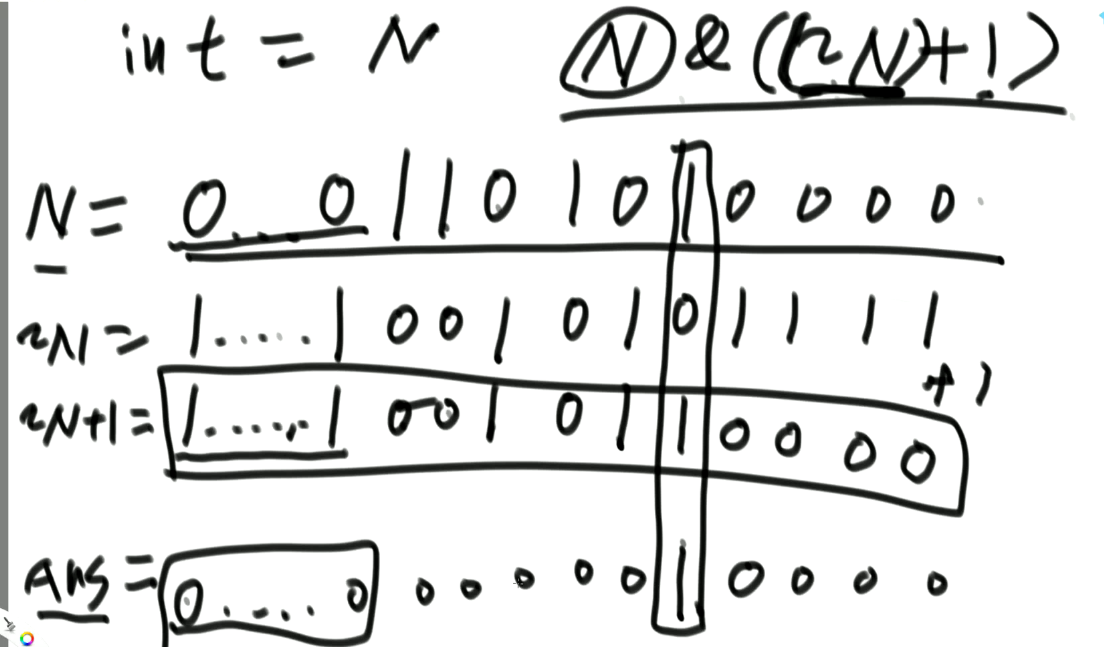 int = N N & ((~N)+1)
N = 0...0 1 1 0 1 0 1 0 0 0 0
~N = 1.....1 0 0 1 0 1 0 1 1 1 1
+1
~N+1 = 1.....1 0 0 1 0 1 1 0 0 0 0
Ans = 0....0 0 0 0 0 0 1 0 0 0 0